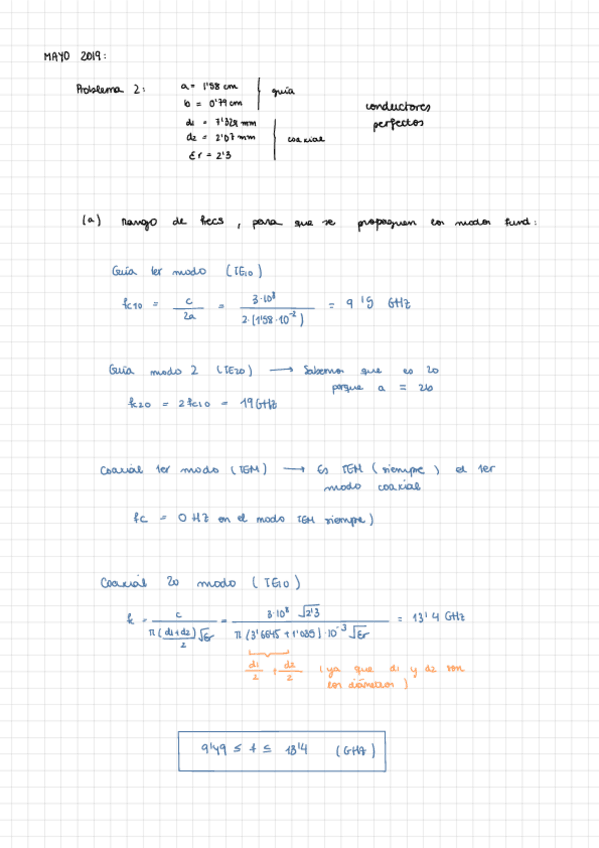 MAYO 2019:
Problema 2:
a = 1'58 cm
b = 0'79 cm
guía
d1 = 7'329 mm
d2 = 2'07 mm
εr = 2'3
coaxial
conductores
perfectos
(a) rango de frecs, para que se propaguen los modos fund:
Guía 1er modo (TE10)
fc10 = c / 2a = 3·10⁸ / 2·(1'58·10⁻²) = 9'5 GHz
Guía modo 2 (TE20) → Sabemos que es 20
porque a = 2b
fc20 = 2fc10 = 19 GHz
Coaxial 1er modo (TEM) → Es TEM (siempre) el 1er
modo coaxial
fc = 0 HZ en el modo TEM siempre)
Coaxial 2o modo (TE10)
fc = c / π (d1+d2)/2 √εr = 3·10⁸ √2'3 / π (3'6645 + 1'035)·10⁻³ √εr = 13'4 GHz
d1/2 + d2/2 (ya que d1 y d2 son
los diámetros)
9'49 ≤ f ≤ 13'4 (GHz)